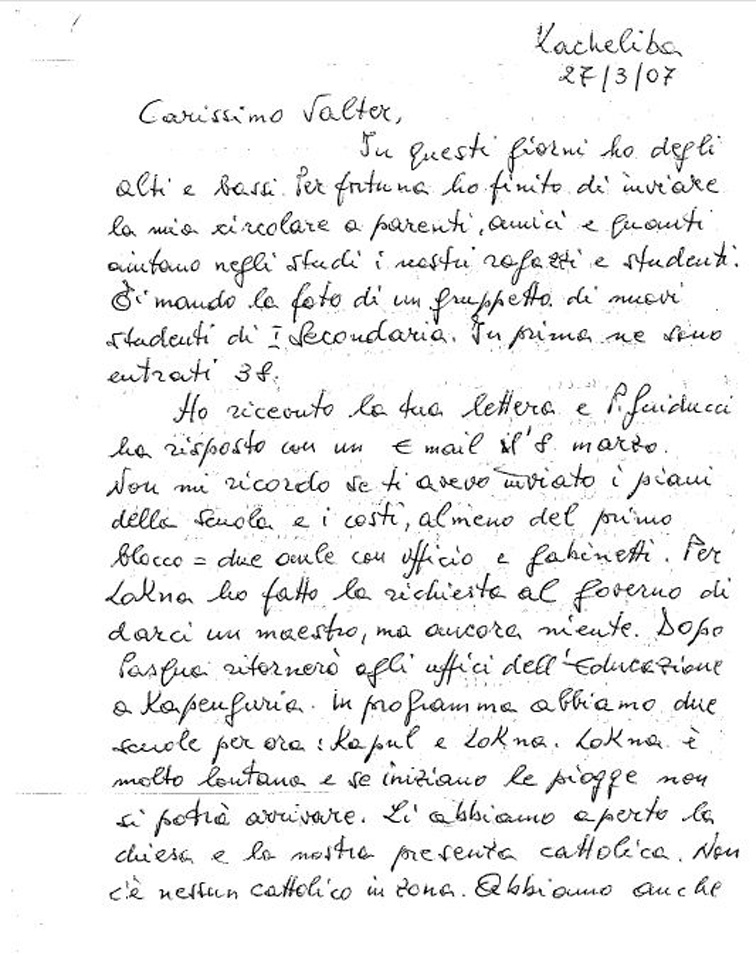 Kacheliba
27/3/07
Carissimo Valter,
In questi giorni ho degli
alti e bassi. Per fortuna ho finito di inviare
la mia circolare a parenti, amici e quanti
aiutano negli studi i nostri ragazzi e studenti.
Ti mando la foto di un gruppetto di nuovi
studenti di I Secondaria. In prima ne sono
entrati 38.
Ho ricevuto la tua lettera e P. Guiducci
ha risposto con un Email il'8 marzo.
Non mi ricordo se ti avevo inviato i piani
della scuola e i costi, almeno del primo
blocco = due aule con ufficio e gabinetti. Per
Lokna ho fatto la richiesta al governo di
darci un maestro, ma ancora niente. Dopo
Pasqua ritornerò agli uffici dell'Educazione
a Kapenguria. In programma abbiamo due
scuole per ora: Kapul e Lokna. Lokna è
molto lontana e se iniziano le piogge non
si potrà arrivare. Lì abbiamo aperto la
chiesa e la nostra presenza cattolica. Non
c'è nessun cattolico in zona. Abbiamo anche